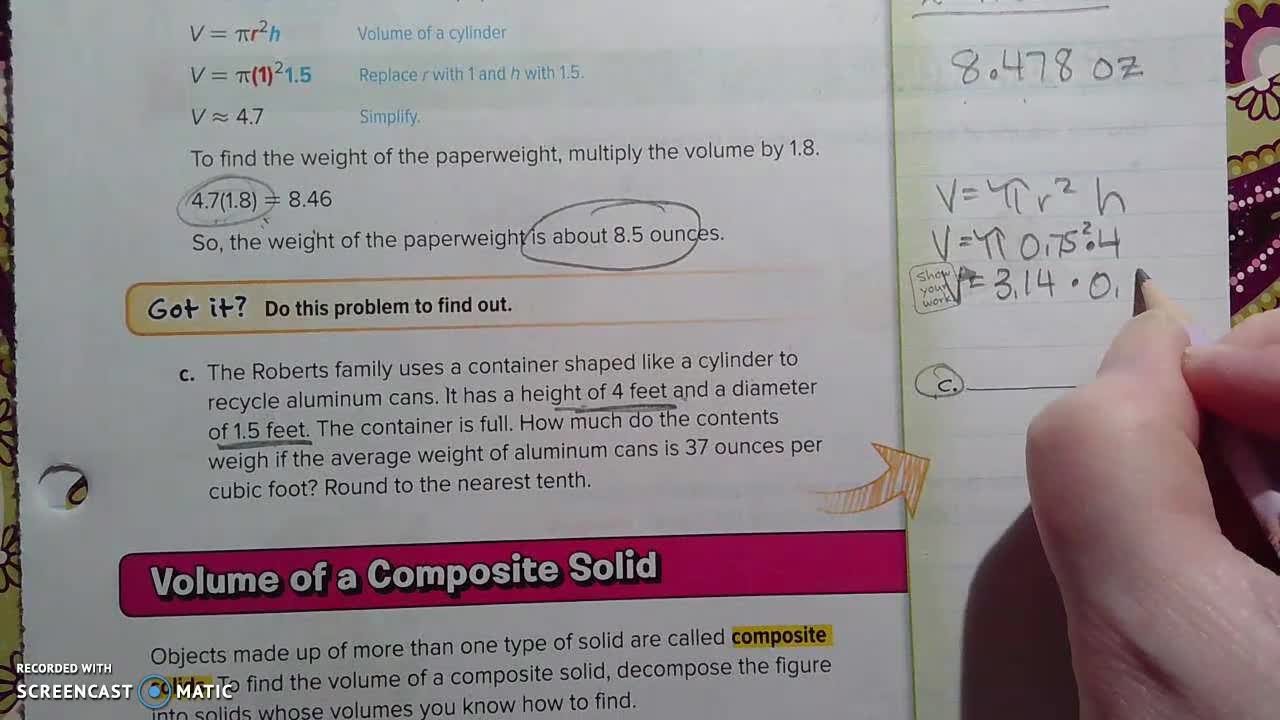 V = πr²h Volume of a cylinder
V = π(1)²1.5 Replace r with 1 and h with 1.5.
V ≈ 4.7 Simplify.
To find the weight of the paperweight, multiply the volume by 1.8.
4.7(1.8) = 8.46
So, the weight of the paperweight is about 8.5 ounces.
Got it? Do this problem to find out.
c. The Roberts family uses a container shaped like a cylinder to
recycle aluminum cans. It has a height of 4 feet and a diameter
of 1.5 feet. The container is full. How much do the contents
weigh if the average weight of aluminum cans is 37 ounces per
cubic foot? Round to the nearest tenth.
Volume of a Composite Solid
Objects made up of more than one type of solid are called composite
solids. To find the volume of a composite solid, decompose the figure
into solids whose volumes you know how to find.
8.478 oz
V = π r² h
V = π 0.75² · 4
Show your work
V = 3.14 · 0.
c.
RECORDED WITH
SCREENCAST MATIC